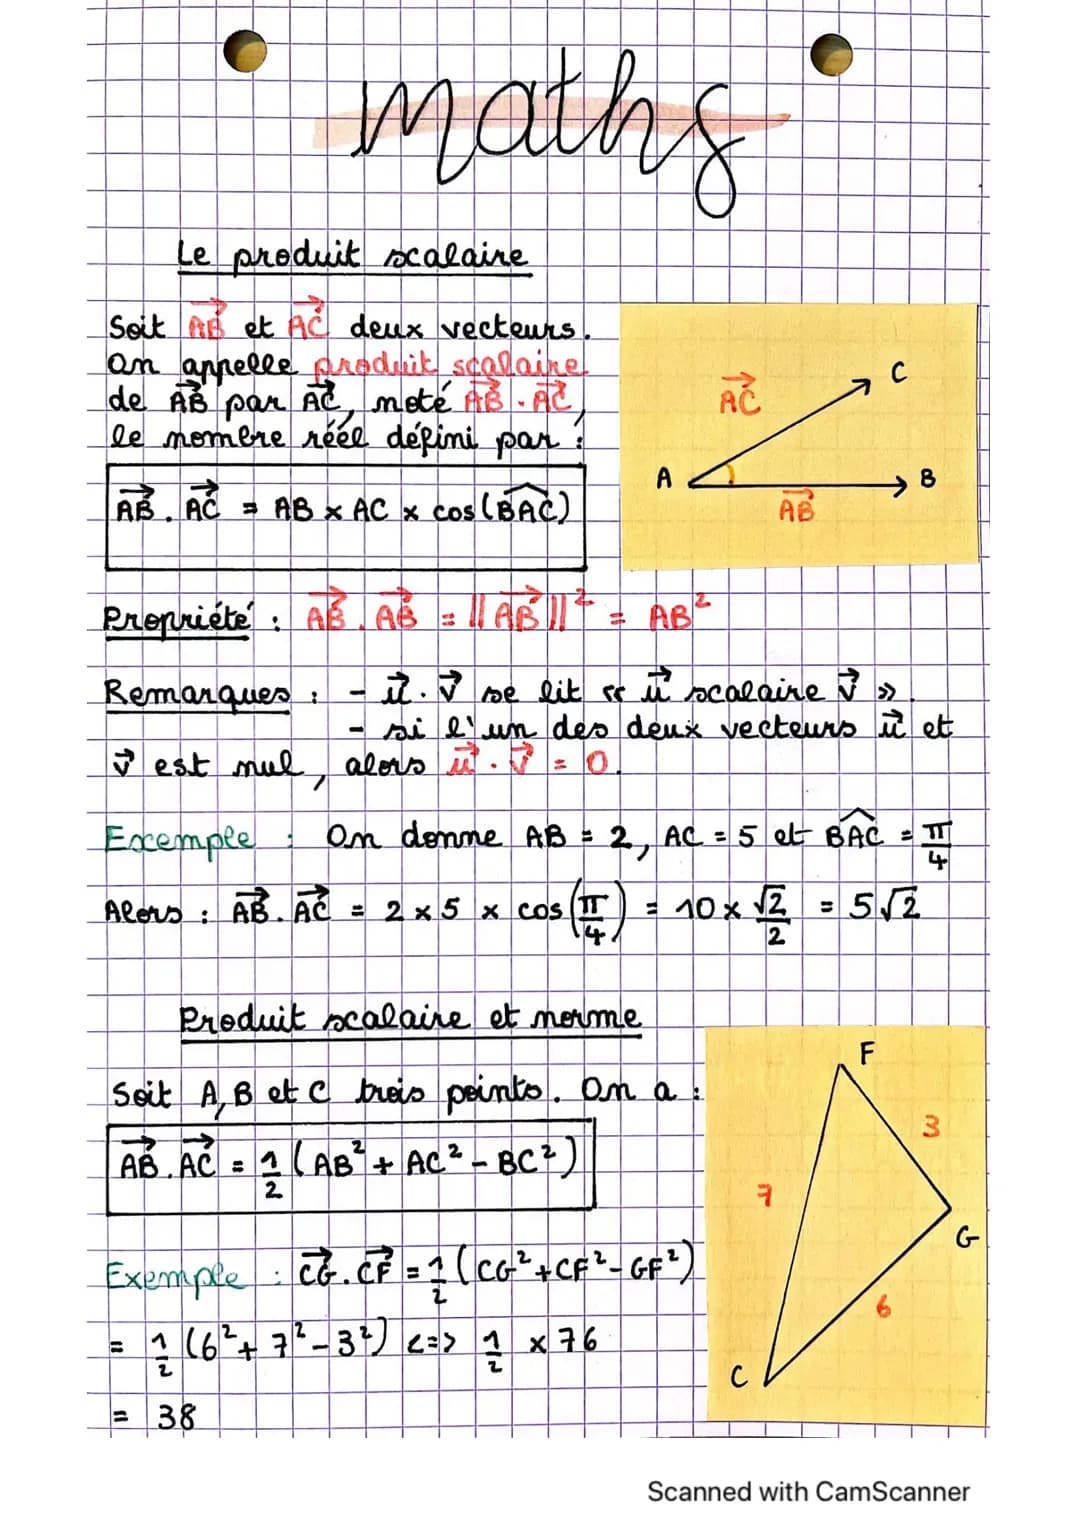 maths
Le produit scalaire
Soit AB⃗ et AC⃗ deux vecteurs.
On appelle produit scalaire
de AB⃗ par AC⃗, noté AB⃗ . AC⃗,
le nombre réél défini par :
AB⃗ . AC⃗ = AB × AC × cos(BAC^)
C
AC⃗
A
B
AB⃗
Propriété : AB⃗ . AB⃗ = ||AB⃗||² = AB²
Remarques : - u⃗ . v⃗ se lit « u⃗ scalaire v⃗ ».
- si l'un des deux vecteurs u⃗ et
v⃗ est nul, alors u⃗ . v⃗ = 0.
Exemple : On donne AB = 2, AC = 5 et BAC^ = π/4
Alors : AB⃗ . AC⃗ = 2 × 5 × cos(π/4) = 10 × √2/2 = 5√2
Produit scalaire et norme
Soit A, B et C trois points. On a :
AB⃗ . AC⃗ = 1/2 (AB² + AC² - BC²)
F
3
7
G
6
C
Exemple : CG⃗ . CF⃗ = 1/2 (CG² + CF² - GF²)
= 1/2 (6² + 7² - 3²) <=> 1/2 × 76
= 38
Scanned with CamScanner